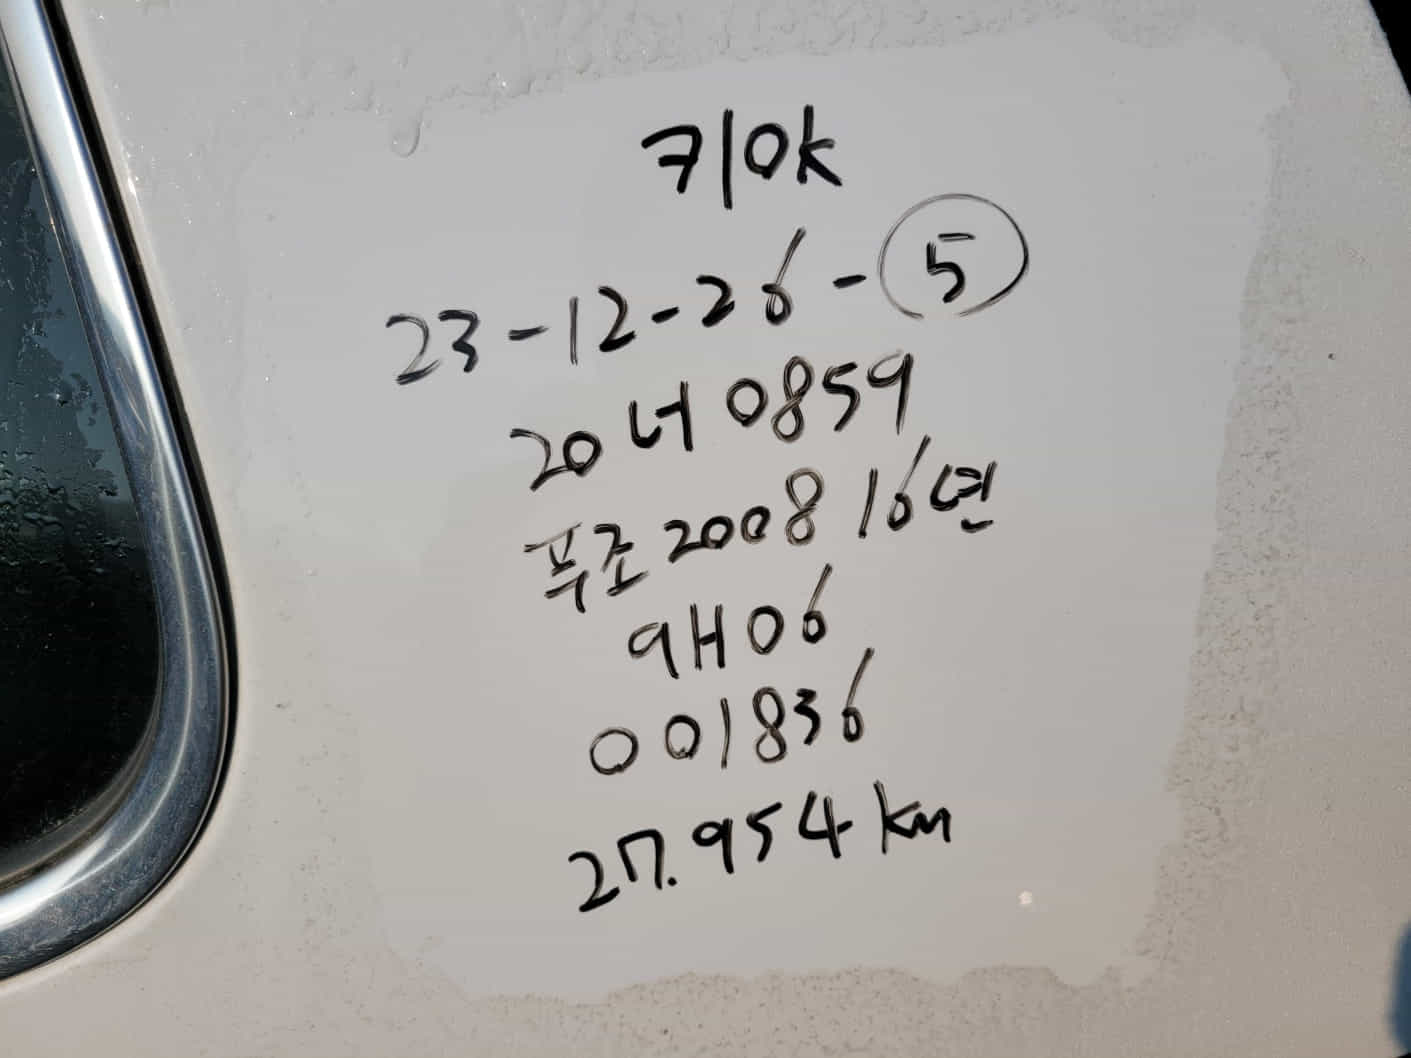 키OK
23-12-26-⑤
20너0859
푸조2008 16년
9H06
001836
27.954km